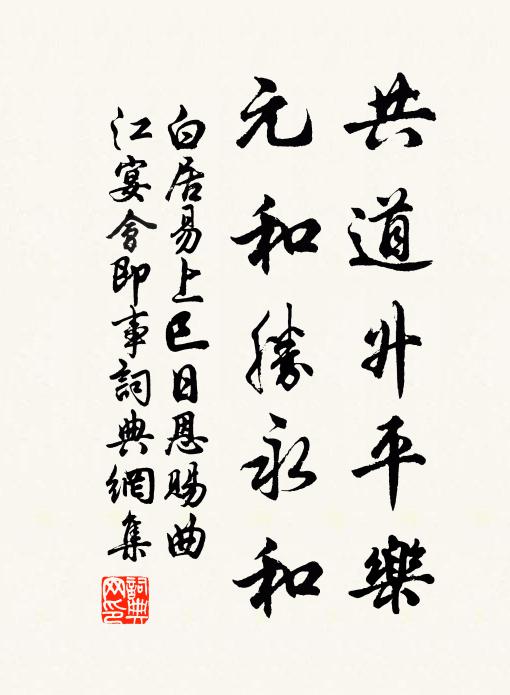 共道升平樂
元和勝永和
白居易上巳日恩賜曲
江宴會即事詞典網集
詞典
网印